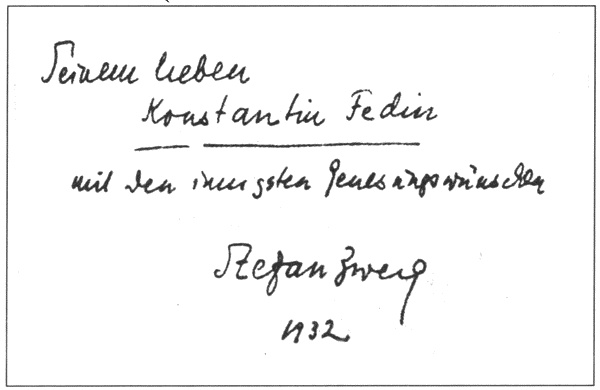 Seinem lieben
Konstantin Fedin
mit den innigsten Genesungswünschen
Stefan Zweig
1932